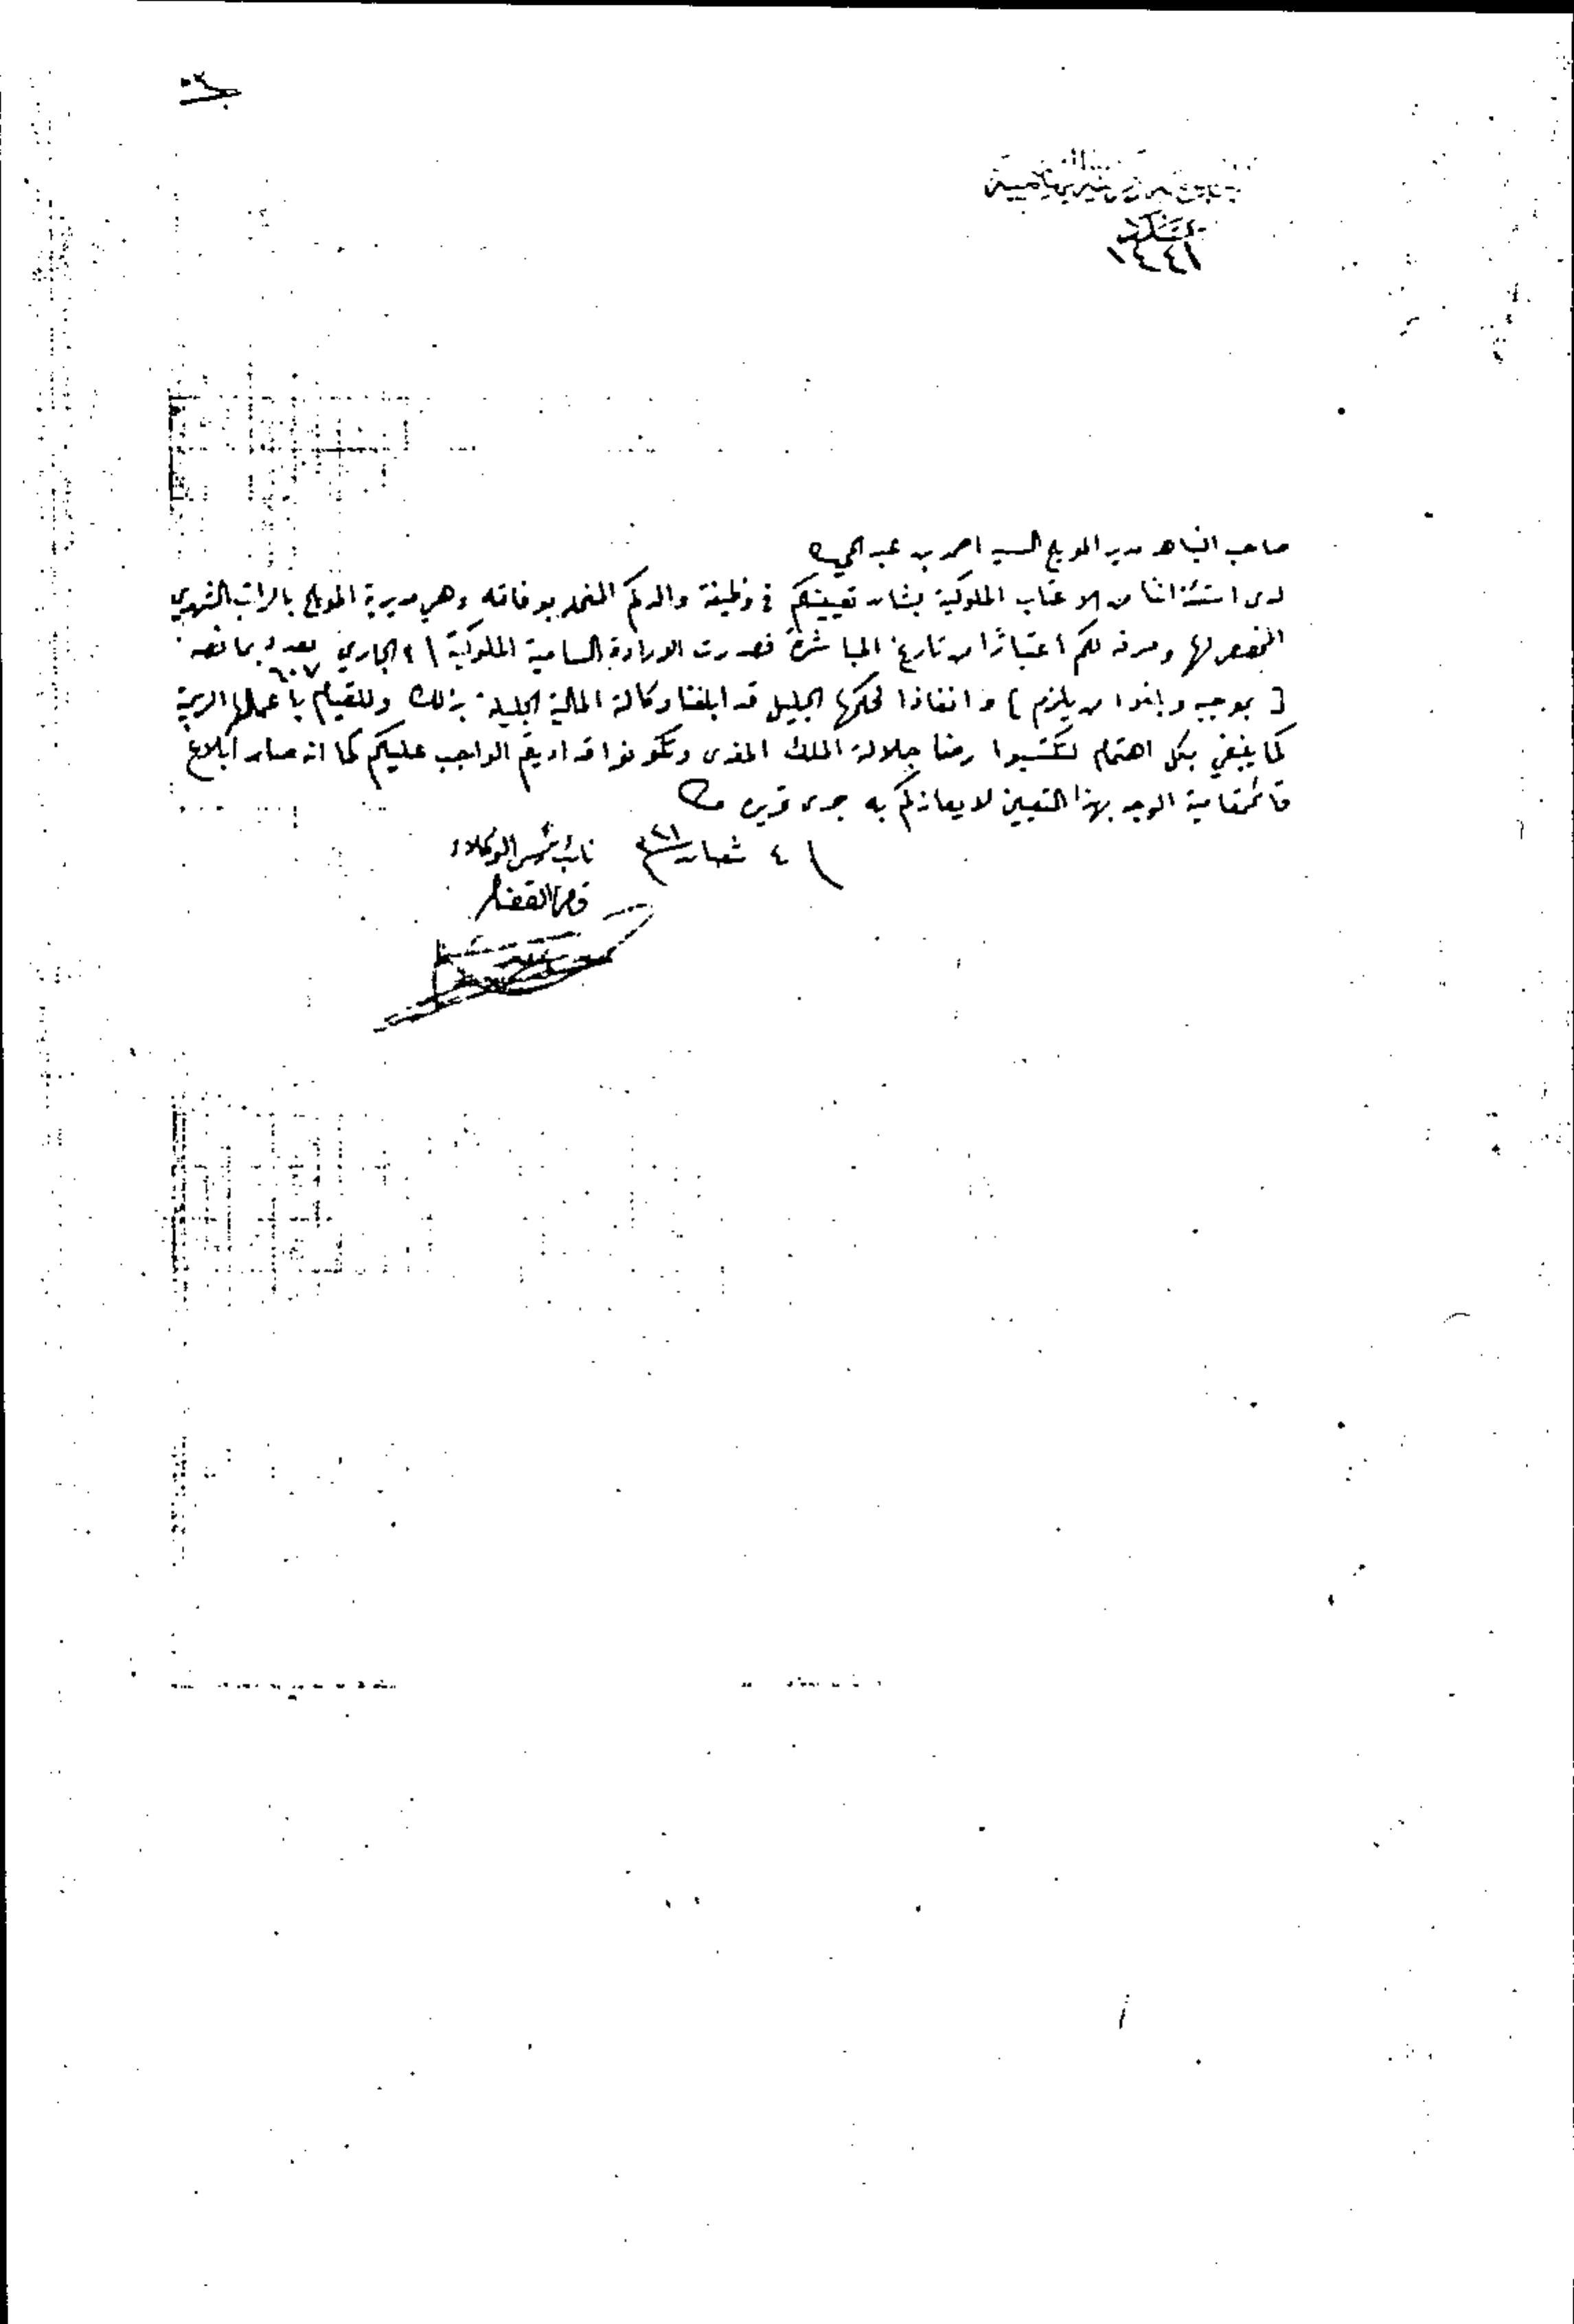 عدد
١٤٤١
صاحب النباهه مدير المويلح السيد احمد بن عبد الحي
لدى استئذاننا من الاعتاب الملوكية بشأن تعيينكم في وظيفة والدكم المنحله بوفاته وهي مديرية المويلح بالراتب الشهري
المخصص لها وصرفه لكم اعتباراً من تاريخ المباشرة فصدرت الارادة السامية الملوكية الجاري بعدد ٦٠٧ بما نصه
[ بموجبه وبلغوا من يلزم ] وانفاذا لحكمها الجليل قد ابلغنا وكالة المالية الجليلة بذلك وللقيام بأعمالها الرسمية
كما ينبغي بكل اهتمام لتكتسبوا رضا جلالة الملك المفدى وتكونوا قد اديتم الواجب عليكم كما انه صار ابلاغ
قائمقامية الوجه بهذا التعيين لا يعازكم به جرى تحريره
١٤ شعبان نائب رئيس الوكلاء
قاضي القضاة